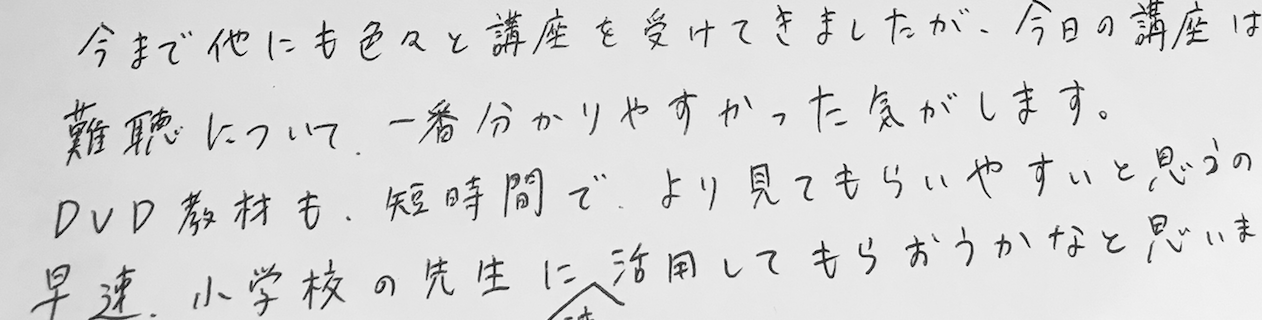 今まで他にも色々と講座を受けてきましたが、今日の講座は
難聴について、一番分かりやすかった気がします。
DVD教材も、短時間で、より見てもらいやすいと思うの
早速、小学校の先生に活用してもらおうかなと思いま